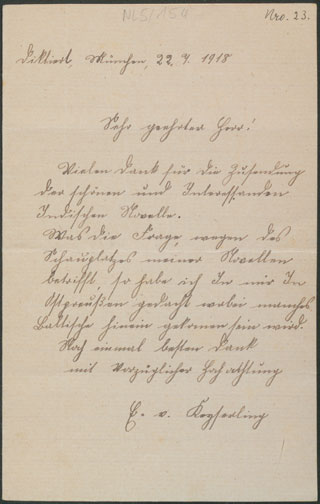 NL 5/154
Nro. 23.
Diktiert, München, 22. 7. 1918
Sehr geehrter Herr!
Vielen Dank für die Zusendung
der schönen und Interessanden
Indischen Novelle.
Was die Frage, wegen des
Schauplatzes meiner Novellen
betrifft, so habe ich In mir In
Ostpreußen gedacht wobei manches
Baltische hinein gekomen sein wird.
Noch einmal besten Dank
mit Vorzüglicher Hochachtung
E. v. Keyserling